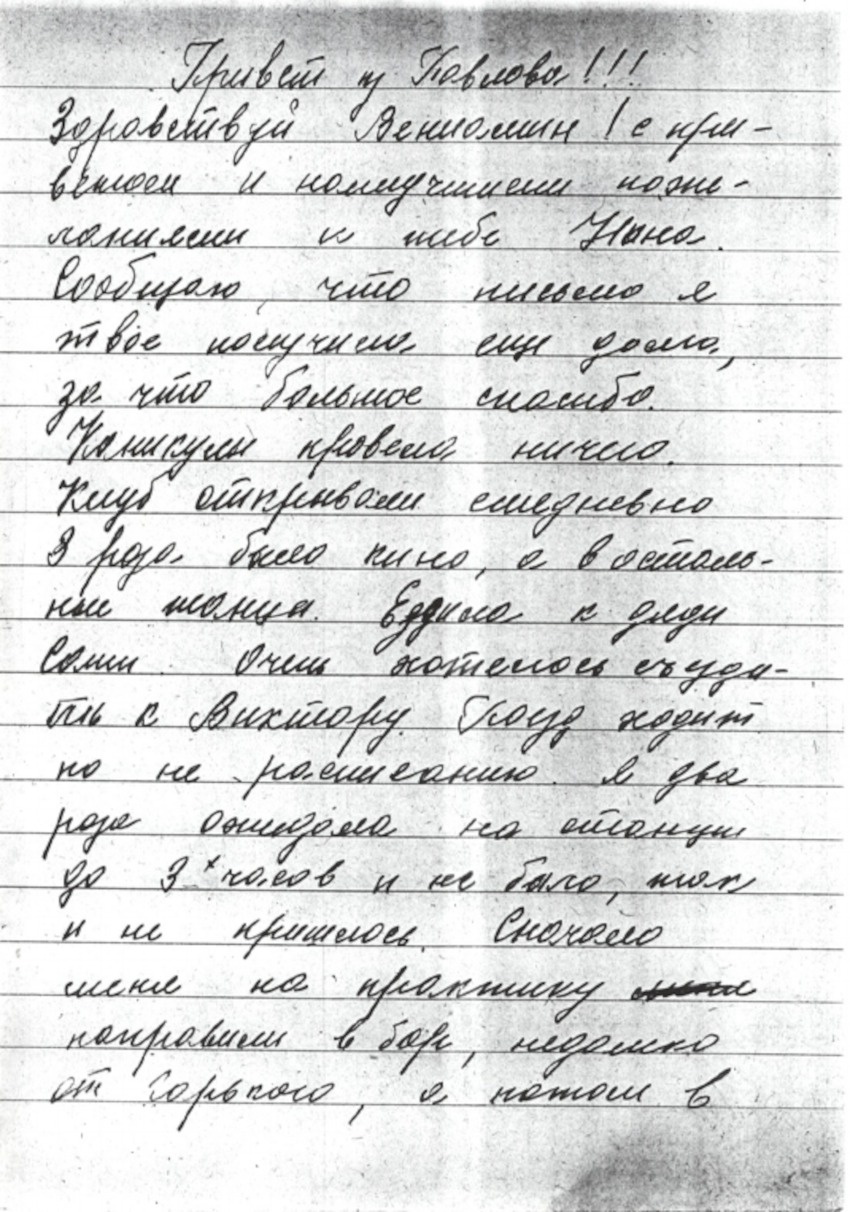 Привет из Павлова!!!
Здравствуй Вениамин! с при-
ветом и наилучшими поже-
ланиями к тебе Нина.
Сообщаю, что письмо я
твое получила еще дома,
за что большое спасибо.
Каникулы провела ничего.
Клуб открывали ежедневно
3 раза было кино, а в осталь-
ные танцы. Ездила к дяди
Саши. Очень хотелось съезди-
ть к Виктору. Поезд ходит
по не расписанию. Я два
раза ожидала на станции
до 3х часов и не было, так
и не пришлось. Сначала
меня на практику
направили в бор, недалеко
от Горького, а потом в